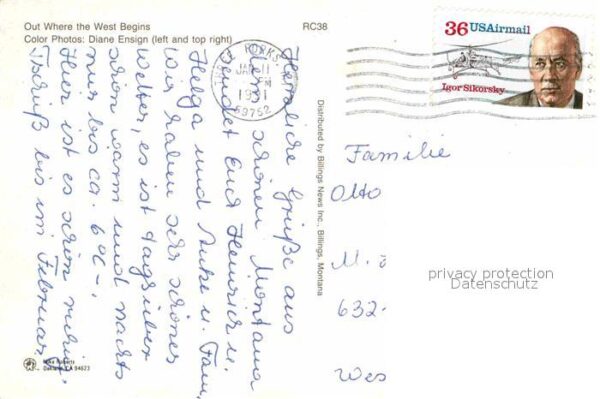 Out Where the West Begins
Color Photos: Diane Ensign (left and top right)
RC38
THREE FORKS
JAN 11
PM
1991
59752
36 USAirmail
Igor Sikorsky
Herzliche Grüße aus
dem schönen Montana
sendet Euch Heinrich u.
Helga und Anke u. Fam.
Wir haben sehr schönes
Wetter, es ist tagsüber
schon warm und nachts
nur bis ca. 6°C -.
Hier ist es schön ruhig.
Tschüß bis im Februar
Distributed by Billings News Inc., Billings, Montana
Familie
Otto
M.
632
Wes
privacy protection
Datenschutz
Mike Roberts
Oakland, CA 94623